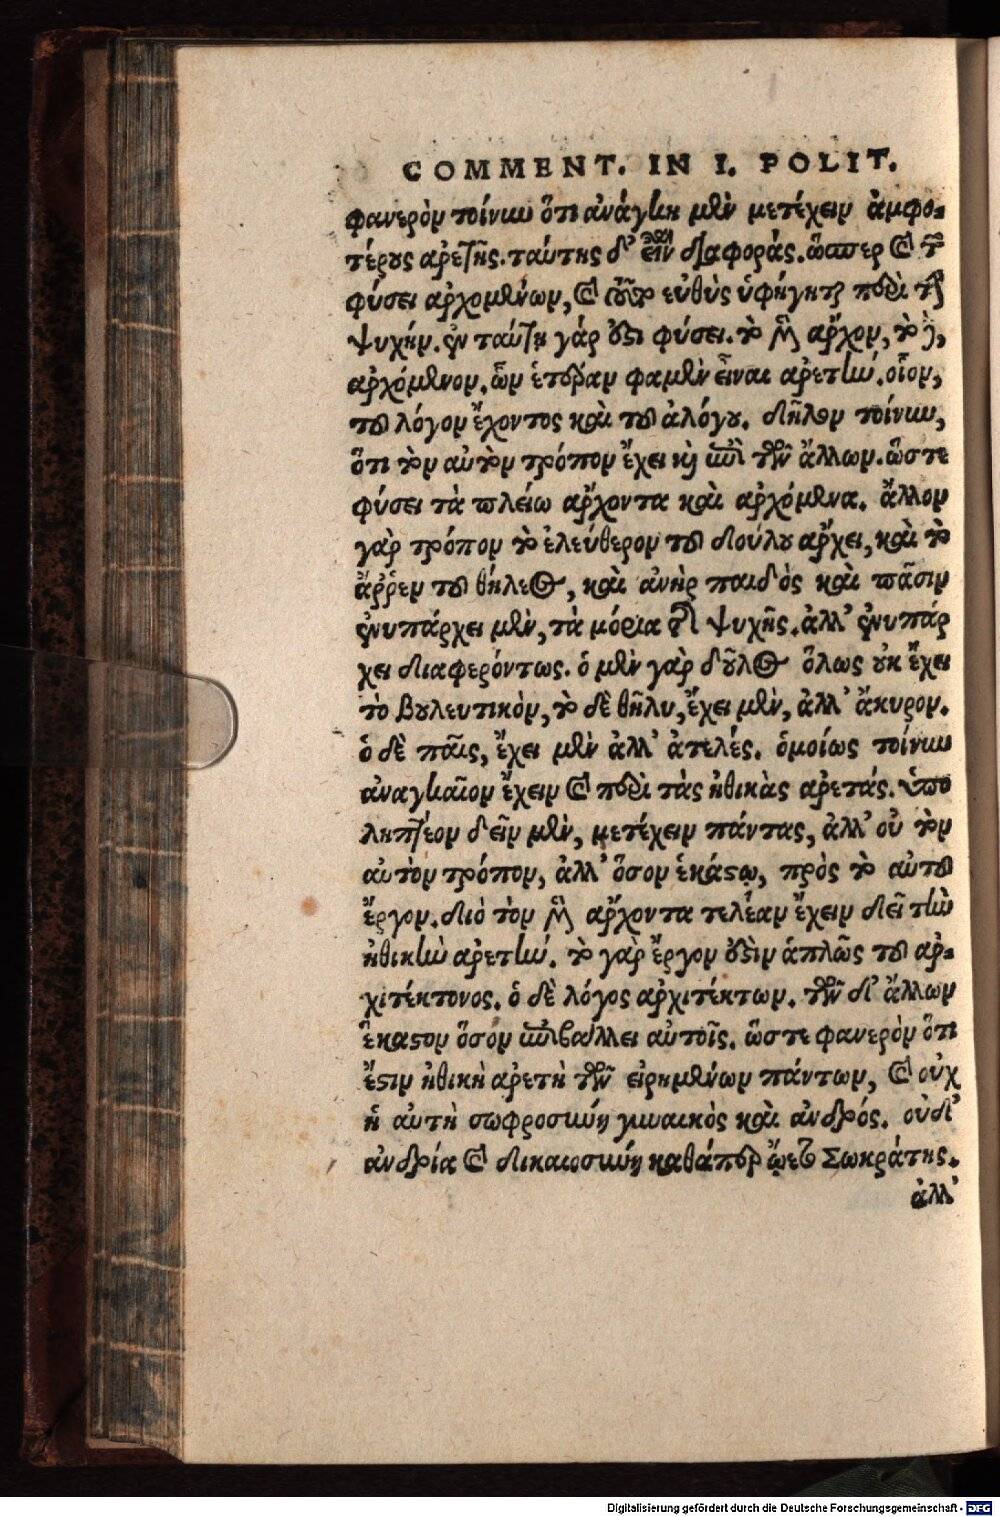 COMMENT. IN I. POLIT.
φανερὸν τοίνυν ὅτι ἀνάγκη μὲν μετέχειν ἀμφο-
τέρους ἀρετῆς. ταύτης δ' εἶναι διαφοράς. ὥσπερ καὶ τῶν
φύσει ἀρχομένων, καὶ τοῦτο εὐθὺς ὑφήγηται περὶ τὴν
ψυχήν. ἐν ταύτῃ γάρ ἐστι φύσει. τὸ μὲν ἄρχον, τὸ δὲ,
ἀρχόμενον. ὧν ἑτέραν φαμὲν εἶναι ἀρετὴν. οἷον,
τοῦ λόγον ἔχοντος καὶ τοῦ ἀλόγου. δῆλον τοίνυν,
ὅτι τὸν αὐτὸν τρόπον ἔχει καὶ ἐπὶ τῶν ἄλλων. ὥστε
φύσει τὰ πλείω ἄρχοντα καὶ ἀρχόμενα. ἄλλον
γὰρ τρόπον τὸ ἐλεύθερον τοῦ δούλου ἄρχει, καὶ τὸ
ἄῤῥεν τοῦ θήλεος, καὶ ἀνὴρ παιδὸς καὶ πᾶσιν
ἐνυπάρχει μὲν, τὰ μόρια τῆς ψυχῆς. ἀλλ' ἐνυπάρ
χει διαφερόντως. ὁ μὲν γὰρ δοῦλος ὅλως οὐκ ἔχει
τὸ βουλευτικὸν, τὸ δὲ θῆλυ, ἔχει μὲν, ἀλλ' ἄκυρον.
ὁ δὲ παῖς, ἔχει μὲν ἀλλ' ἀτελές. ὁμοίως τοίνυν
ἀναγκαῖον ἔχειν καὶ περὶ τὰς ἠθικὰς ἀρετάς. ὑπο
ληπτέον δεῖν μὲν, μετέχειν πάντας, ἀλλ' οὐ τὸν
αὐτὸν τρόπον, ἀλλ' ὅσον ἑκάστῳ, πρὸς τὸ αὐτοῦ
ἔργον. διὸ τὸν μὲν ἄρχοντα τελέαν ἔχειν δεῖ τὴν
ἠθικὴν ἀρετὴν. τὸ γὰρ ἔργον ἐστὶν ἁπλῶς τοῦ ἀρ-
χιτέκτονος. ὁ δὲ λόγος ἀρχιτέκτων. τῶν δ' ἄλλων
ἕκαστον ὅσον ἐπιβάλλει αὐτοῖς. ὥστε φανερὸν ὅτι
ἔστιν ἠθικὴ ἀρετὴ τῶν εἰρημένων πάντων, καὶ οὐχ
ἡ αὐτὴ σωφροσύνη γυναικὸς καὶ ἀνδρός. οὐδ'
ἀνδρία καὶ δικαιοσύνη καθάπερ ᾤετο Σωκράτης.
ἀλλ'
Digitalisierung gefördert durch die Deutsche Forschungsgemeinschaft - DFG